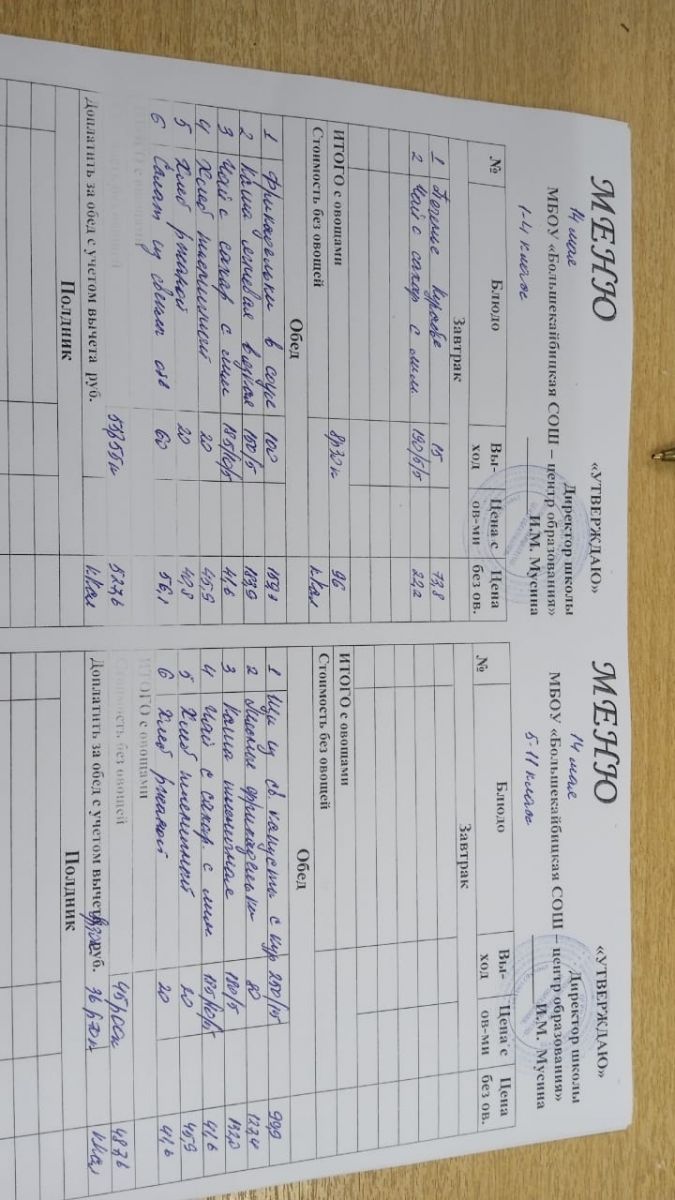 МЕНЮ
«УТВЕРЖДАЮ»
14 мая
Директор школы
МБОУ «Большекайбицкая СОШ – центр образования»
И.М. Мусина
1-4 класс
№ Блюдо Вы-ход Цена с ов-ми Цена без ов.
Завтрак
1 Печенье 15 73,8
2 Чай с сахар с лим 190/5/5 22,2
ИТОГО с овощами 8р30к 96
Стоимость без овощей ккал
Обед
1 Фрикадельки в соусе 100
2 Каша вязкая 150/5 183,9
3 Чай с сахар с лим 41,6
4 Хлеб пшеничный 20 45,9
5 Хлеб ржаной 20
6 Салат из свежих 60 56,1
527,6
Доплатить за обед с учетом вычета руб. ккал
Полдник
МЕНЮ
«УТВЕРЖДАЮ»
14 мая
Директор школы
МБОУ «Большекайбицкая СОШ – центр образования»
И.М. Мусина
5-11 класс
№ Блюдо Вы-ход Цена с ов-ми Цена без ов.
Завтрак
ИТОГО с овощами
Стоимость без овощей
Обед
1 Щи из св. капусты с кур 250/15 99,9
2 фрикадельки 80 127,4
3 Каша пшеничная 180/5
4 Чай с сахар. с лим 41,6
5 Хлеб пшеничный 20 45,9
6 Хлеб ржаной 20 41,6
ИТОГО с овощами
Стоимость без овощей 45р00к 487,6
Доплатить за обед с учетом вычета руб. ккал
Полдник